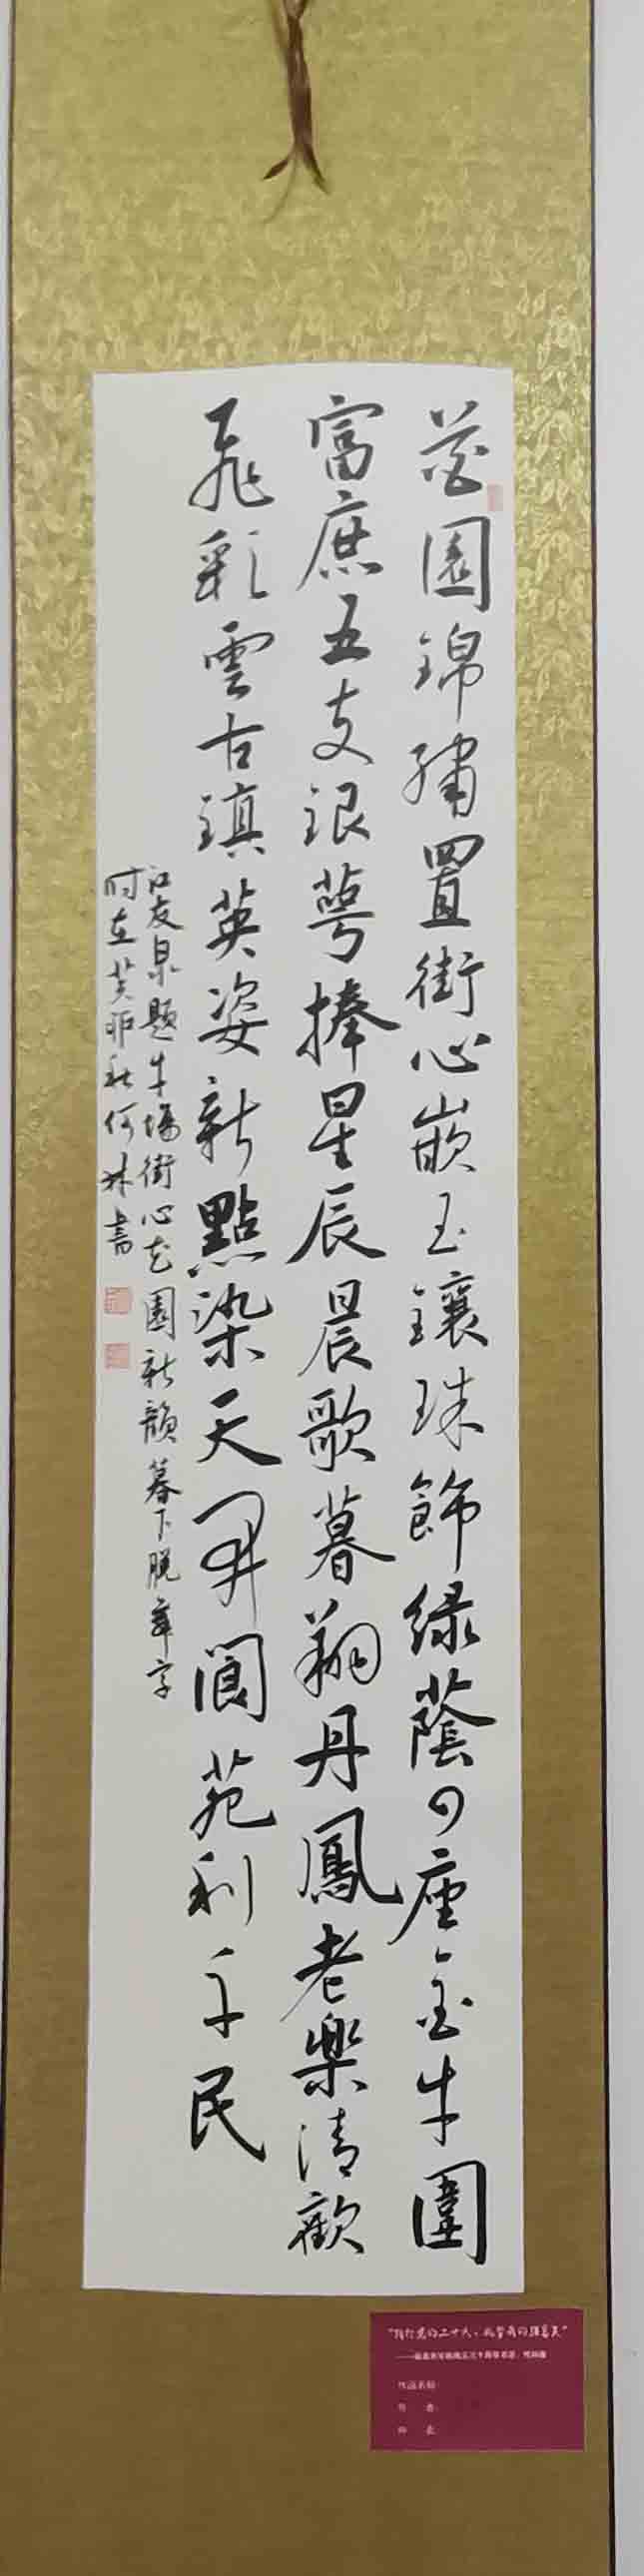 花園錦繡置街心嵌玉鑲珠飾绿蔭四座金牛圍
富庶五支銀萼捧星辰晨歌暮翔丹鳳老樂清歡
飛彩雲古鎮英姿新點染天開閬苑利千民
江友泉題牛場街心花園新韻幕下脱帝字
时在癸卯秋何林書
作品名称：
作 者：